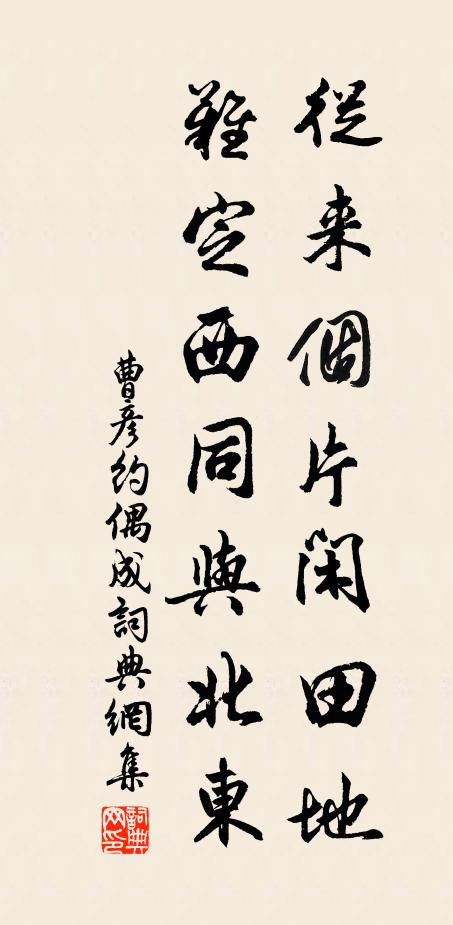 從来個片閑田地
難定西同與北東
曹彦約偶成詞典網集
詞典网印